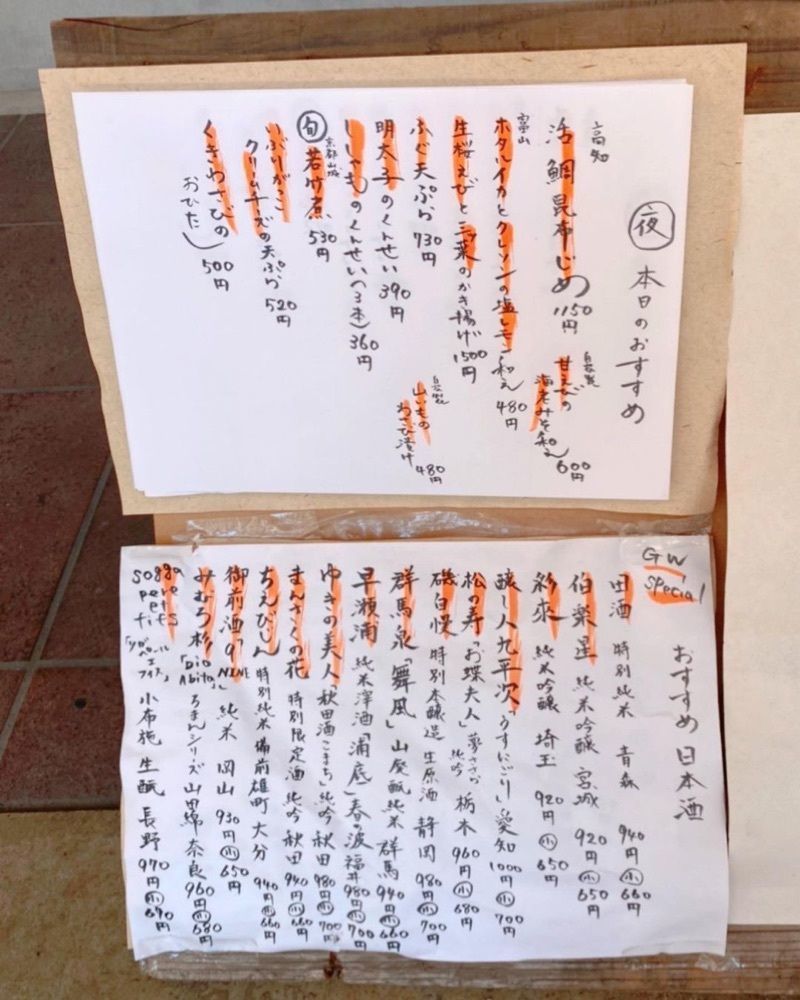 夜 本日のおすすめ
高知
活鯛昆布じめ 1150円
自家製
甘えびの
海老みそ和え 600円
富山
ホタルイカとクレソンの塩レモン和え 480円
生桜えびと三つ葉のかき揚げ 1500円
ふぐ天ぷら 730円
自家製
山いもの
わさび漬け 480円
明太子のくんせい 390円
ししゃものくんせい(3本) 360円
旬 京都山城
若竹煮 530円
いぶりがっこ
クリームチーズの天ぷら 520円
くきわさびの
おひたし 500円
GW
special
おすすめ日本酒
田酒 特別純米 青森 940円 小 660円
伯楽星 純米吟醸 宮城 920円 小 650円
彩來 純米吟醸 埼玉 920円 小 650円
醸し人九平次「うすにごり」愛知 1000円 小 700円
松の寿「お蝶夫人」夢ささら 純吟 栃木 960円 小 680円
磯自慢 特別本醸造 生原酒 静岡 980円 小 700円
群馬泉「舞風」山廃酛純米 群馬 940円 小 660円
早瀬浦 純米滓酒「浦底」春の波 福井 980円 小 700円
ゆきの美人「秋田酒こまち」純吟 秋田 980円 小 700円
まんさくの花 特別限定酒 純吟 秋田 940円 小 660円
ちえびじん 特別純米 備前雄町 大分 940円 小 660円
御前酒「9NINE」純米 岡山 930円 小 650円
みむろ杉「Dio Abita」ろまんシリーズ 山田錦 奈良 960円 小 680円
sogga pere et fils 「ソガ ペール エ フィス」 小布施 生酛 長野 970円 小 690円